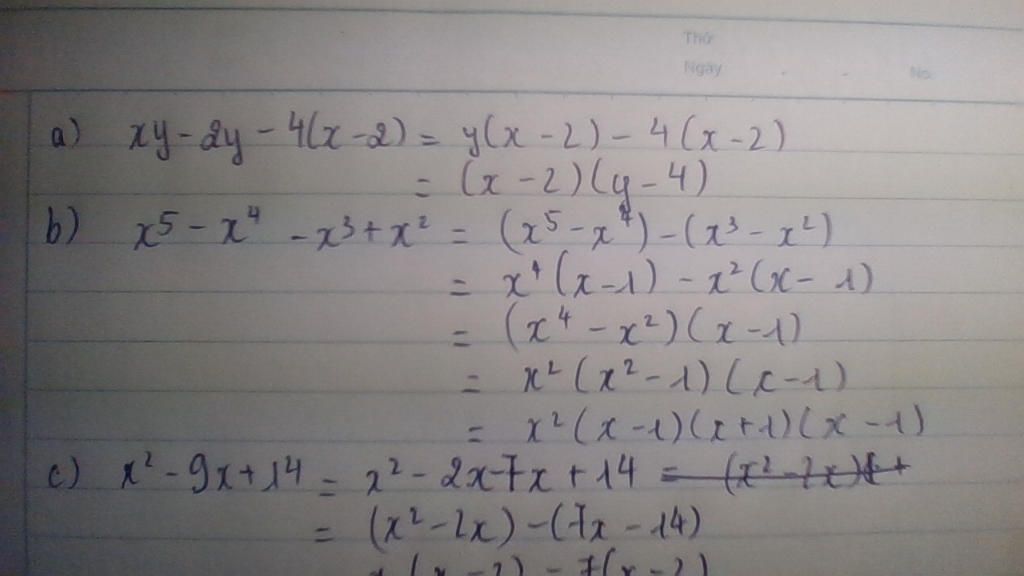 Thứ
Ngày . . No.
a) xy - 2y - 4(x-2) = y(x - 2) - 4(x-2)
= (x - 2)(y - 4)
b) x⁵ - x⁴ - x³ + x² = (x⁵ - x⁴) - (x³ - x²)
= x⁴(x - 1) - x²(x - 1)
= (x⁴ - x²)(x - 1)
= x²(x² - 1)(x - 1)
= x²(x - 1)(x + 1)(x - 1)
c) x² - 9x + 14 = x² - 2x - 7x + 14
= (x² - 2x) - (7x - 14)
(x - 2) - 7(x - 2)